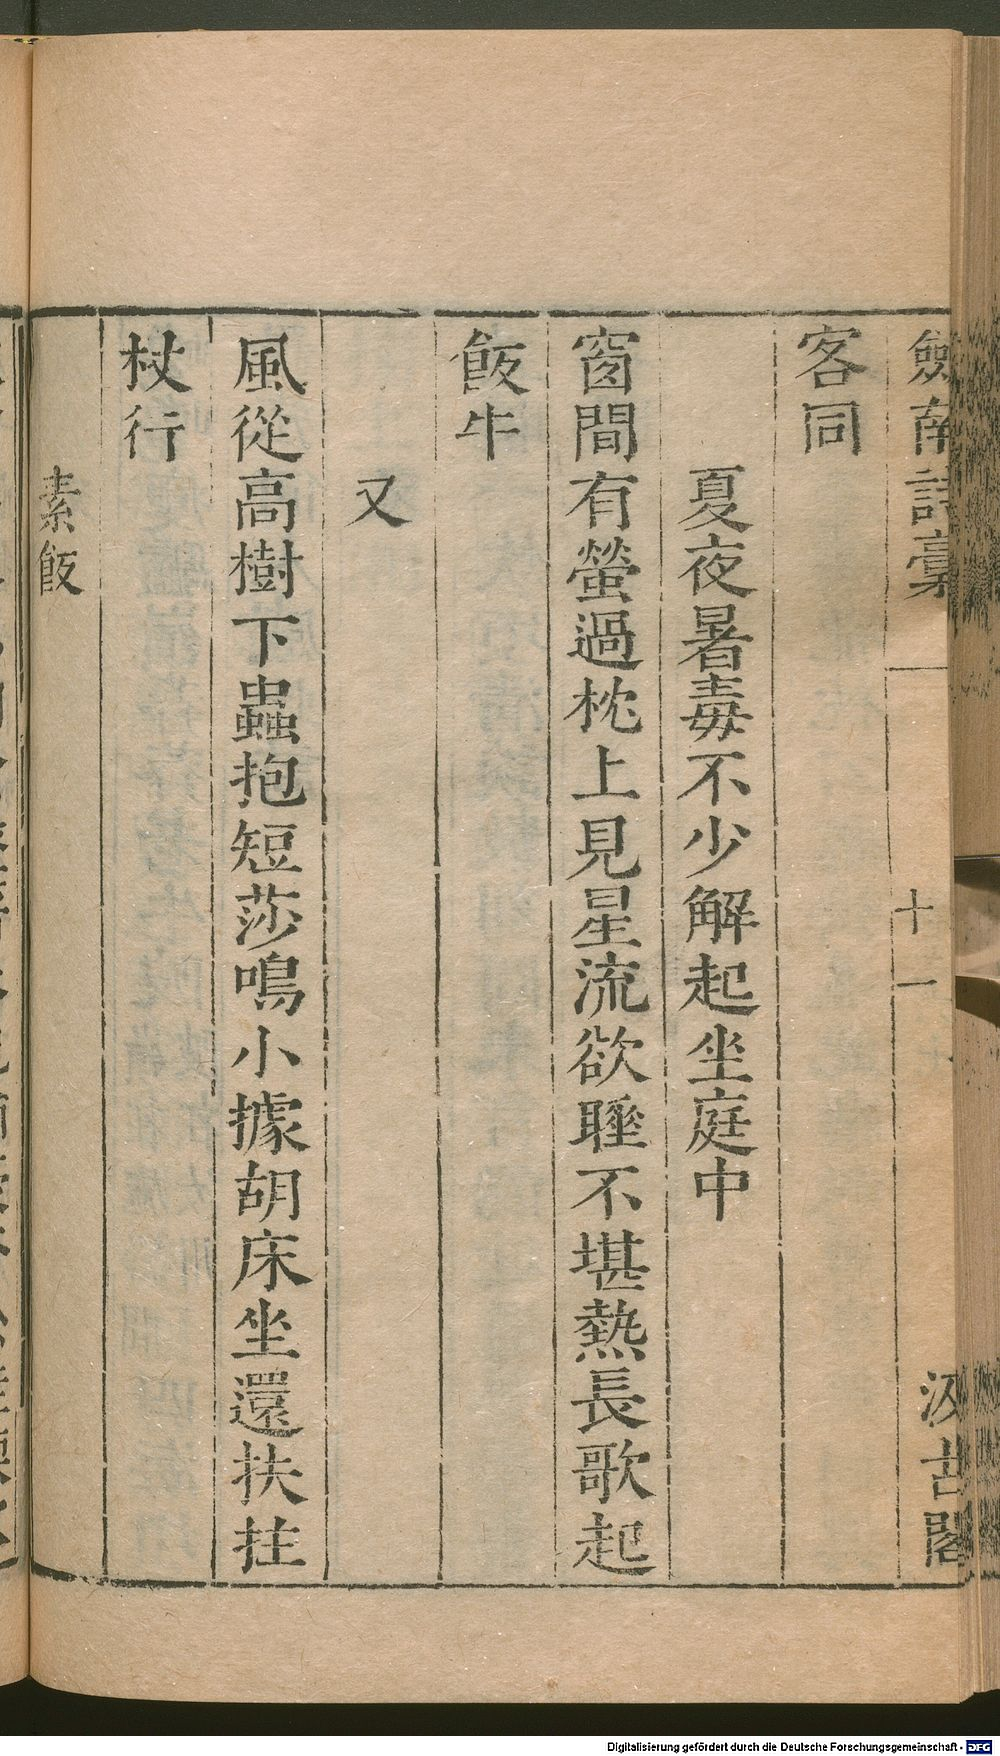 劍南詩稾 十一 汲古閣
客同
夏夜暑毒不少解起坐庭中
窗間有螢過枕上見星流欲睡不堪熱長歌起
飯牛
又
風從高樹下蟲抱短莎鳴小據胡床坐還扶拄
杖行
素飯
Digitalisierung gefördert durch die Deutsche Forschungsgemeinschaft - DFG